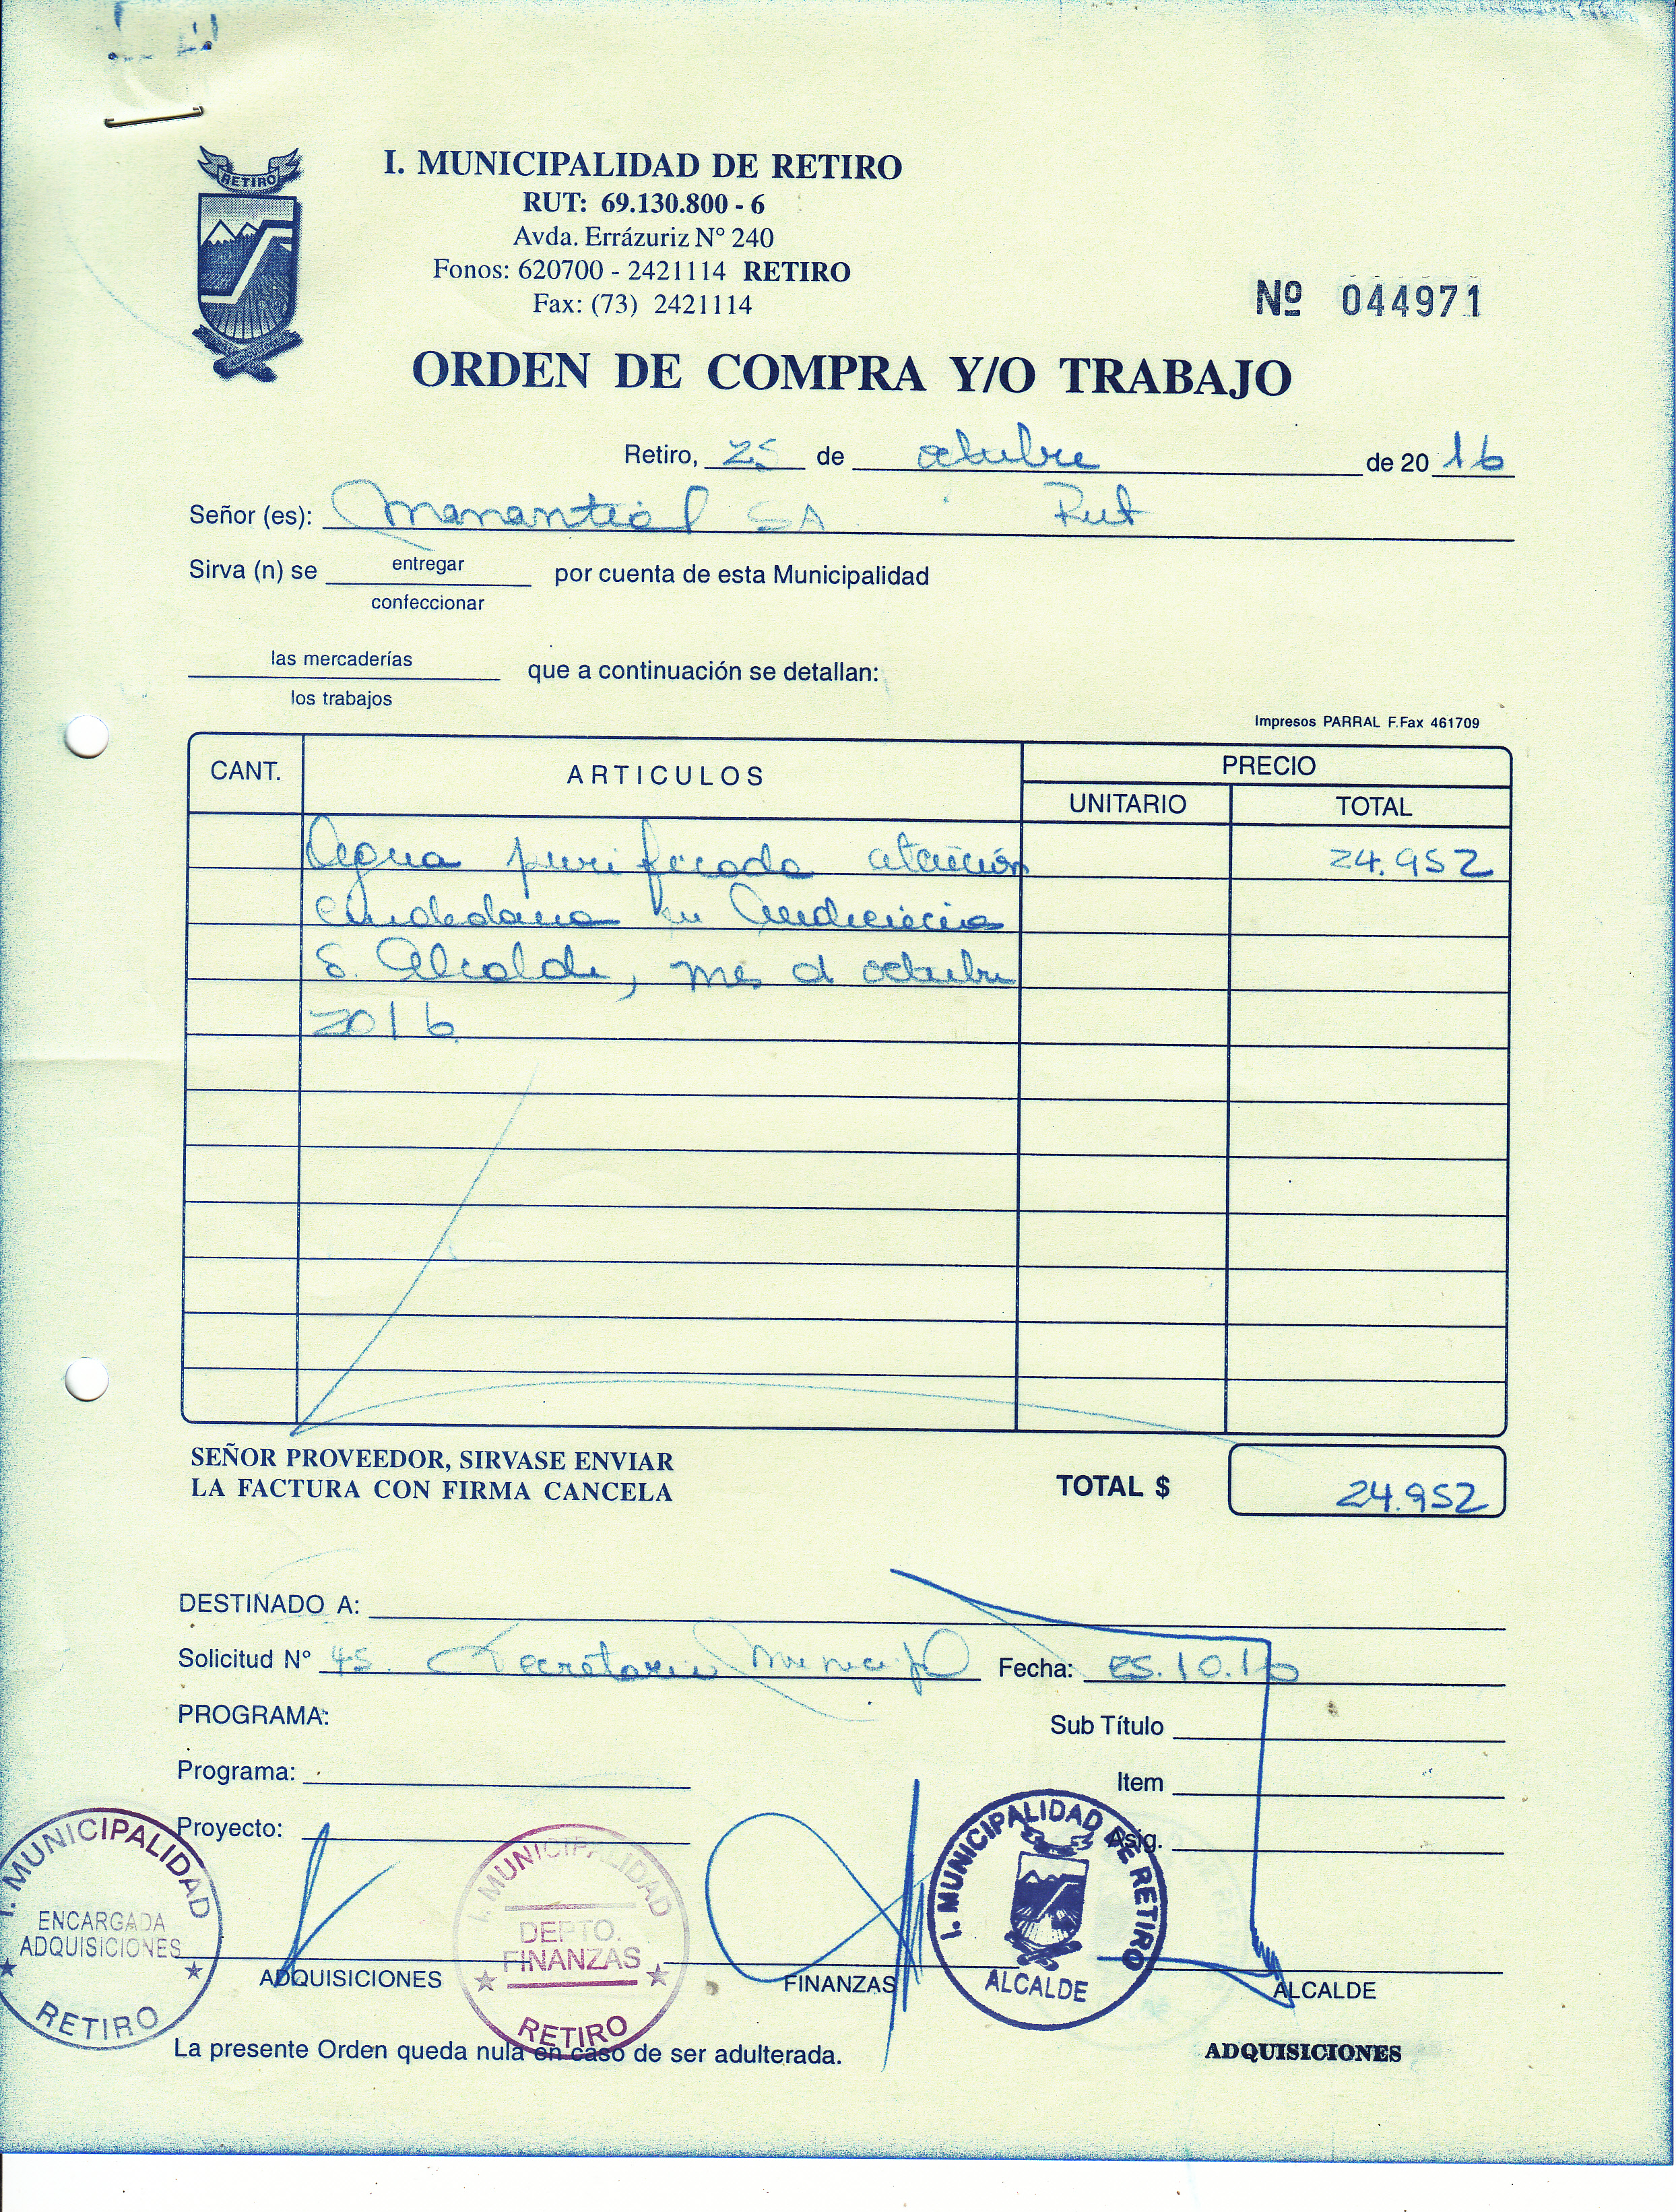 RETIRO
I. MUNICIPALIDAD DE RETIRO
RUT: 69.130.800 - 6
Avda. Errázuriz N° 240
Fonos: 620700 - 2421114 RETIRO
Fax: (73) 2421114
Nº 044971
ORDEN DE COMPRA Y/O TRABAJO
Retiro, 25 de octubre de 2016
Señor (es): Manantial SA Rut
Sirva (n) se entregar por cuenta de esta Municipalidad
confeccionar
las mercaderías que a continuación se detallan:
los trabajos
Impresos PARRAL F.Fax 461709
CANT. ARTICULOS PRECIO
UNITARIO TOTAL
Agua purificada atención 24.952
ciudadana en Audiencia
S. Alcalde, mes d octubre
2016
SEÑOR PROVEEDOR, SIRVASE ENVIAR
LA FACTURA CON FIRMA CANCELA
TOTAL $ 24.952
DESTINADO A:
Solicitud N° 45. Secretaria Municipal Fecha: 25.10.16
PROGRAMA:
Sub Título
Programa:
Item
Proyecto:
Asig.
I. MUNICIPALIDAD
ENCARGADA
ADQUISICIONES
RETIRO
I. MUNICIPALIDAD
DEPTO.
FINANZAS
RETIRO
I. MUNICIPALIDAD DE RETIRO
ALCALDE
ADQUISICIONES FINANZAS ALCALDE
La presente Orden queda nula en caso de ser adulterada.
ADQUISICIONES